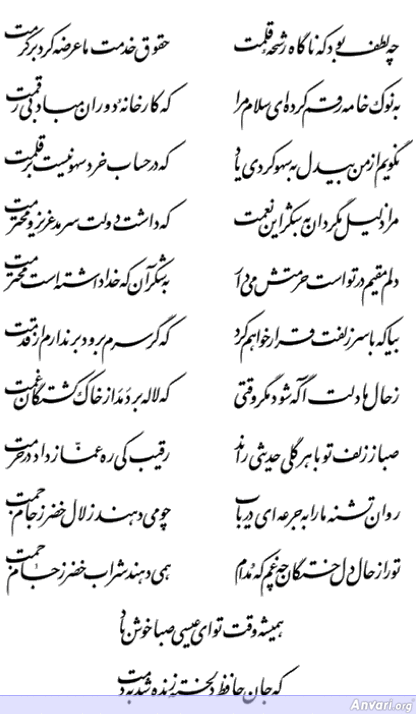 چه لطف بود که ناگاه رشحه قلمت حقوق خدمت ما عرضه کرد بر کرمت
به نوک خامه رقم کرده‌ای سلام مرا که کارخانه دوران مباد بی رقمت
نگویم از من بیدل به سهو کردی یاد که در حساب خرد سهو نیست بر قلمت
مرا ذلیل مگردان به شکر این نعمت که داشت دولت سرمد عزیز و محترمت
دلم مقیم در تو است حرمتش می‌دار به شکر آن که خدا داشته است محترمت
بیا که با سر زلفت قرار خواهم کرد که گر سرم برود برندارم از قدمت
ز حال ما دلت آگه شود مگر وقتی که لاله بردمد از خاک کشتگان غمت
صبا ز زلف تو با هر گلی حدیثی راند رقیب کی ره غماز داد در حرمت
روان تشنه ما را به جرعه ای دریاب چو می دهند زلال خضر ز جام جمت
تو را ز حال دل خستگان چه غم که مدام همی دهند شراب خضر ز جام جمت
همیشه وقت تو ای عیسی صبا خوش باد
که جان حافظ دلخسته زنده شد به دمت
Anvari.org